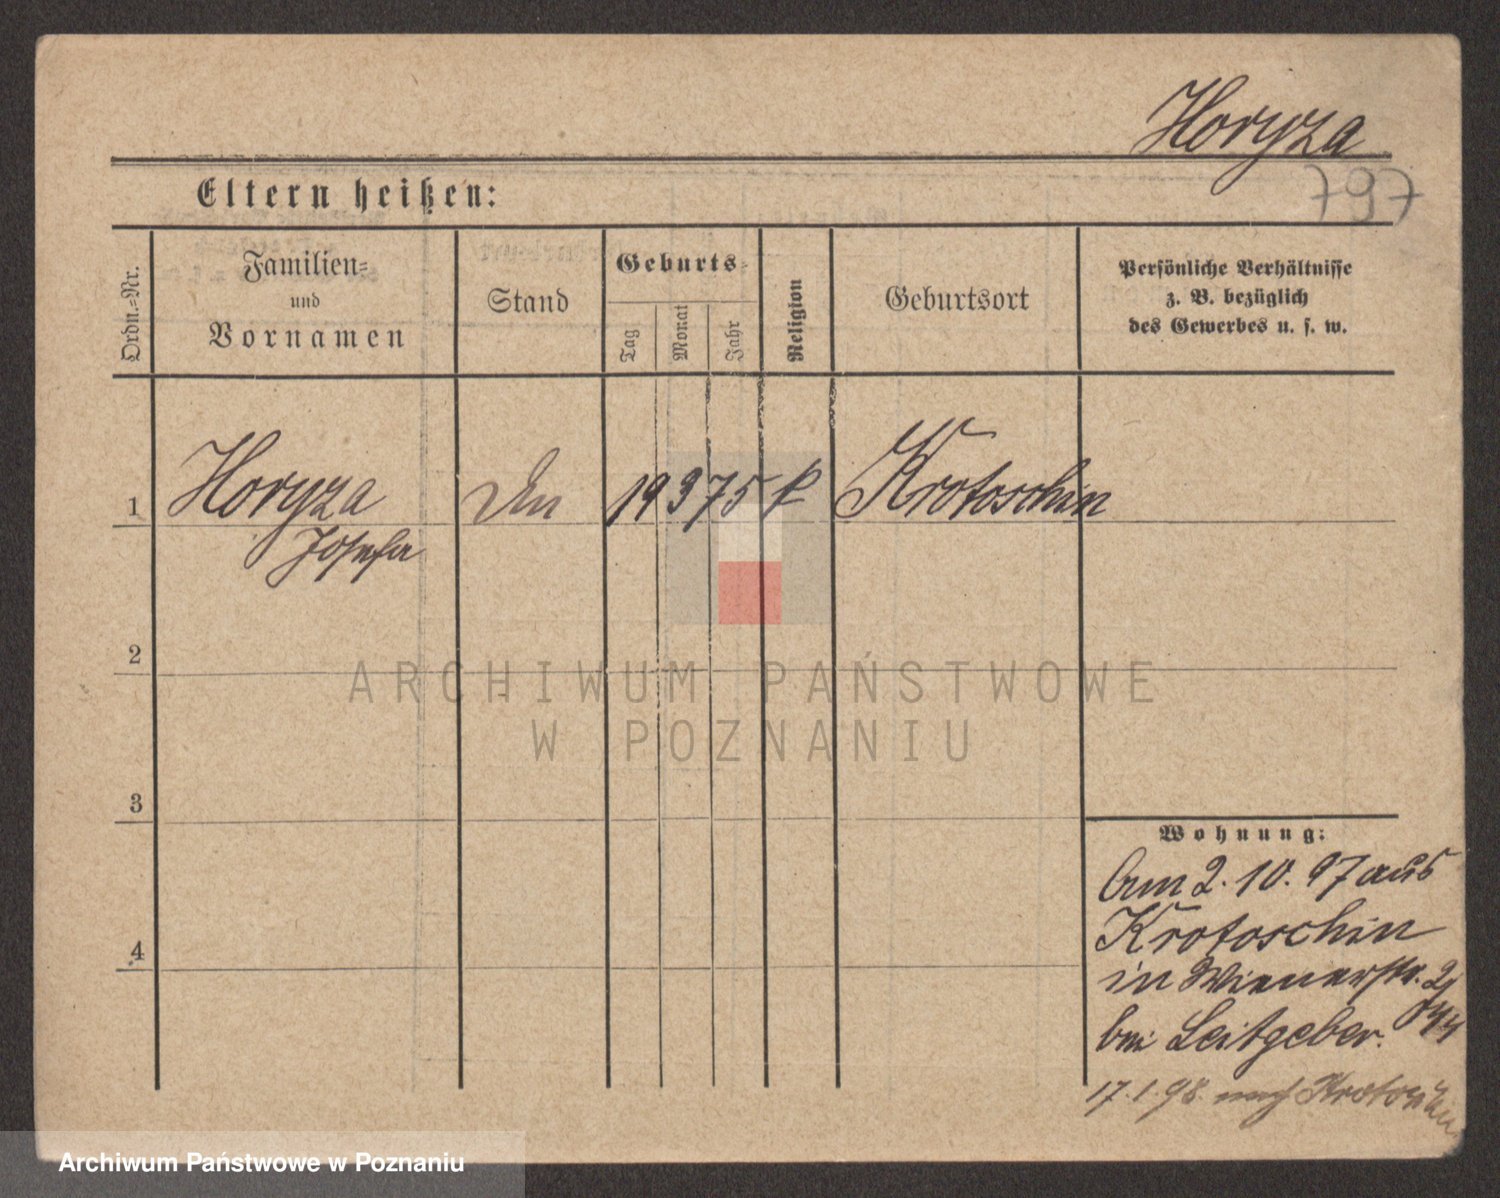 Horyza
797
Eltern heißen:
Ordn.=Nr.
Familien=
und
Vornamen
Stand
Geburts=
Tag
Monat
Jahr
Religion
Geburtsort
Persönliche Verhältnisse
z. B. bezüglich
des Gewerbes u. s. w.
1 Horyza 19 3 75 k Krotoschin
Josefa
2
3
4
ARCHIWUM PAŃSTWOWE
W POZNANIU
Wohnung:
Am 2. 10. 97 aus
Krotoschin
in Wienerstr. 2
bei Leitgeber.
17. 1. 98. nach Krotoschin.
Archiwum Państwowe w Poznaniu